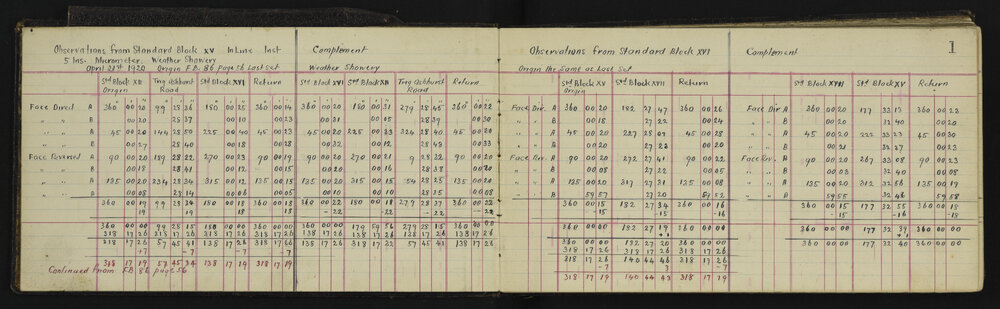 Observations from Standard Block XV In Line last
5 Ins. Micrometer. Weather Showery
April 21st 1920 Origin F.B. 86 Page 56 Last Set
Std Block XV Origin Tng Ashburst Road Std Block XVI Return
Face Direct A 360 00 20 99 28 36 180 00 25 360 00 14
" " B 00 20 28 37 00 10 00 23
" " A 45 00 20 144 28 50 225 00 40 45 00 23
" " B 00 27 28 40 00 18 00 28
Face Reversed A 90 00 20 189 28 22 270 00 23 90 00 19
" " B 00 18 28 41 00 12 00 15
" " A 135 00 20 234 28 34 315 00 12 135 00 15
" " B 00 08 28 14 00 06 00 05
360 00 19 99 28 34 180 00 18 360 00 18
19 19 18 18
360 00 00 99 28 15 180 00 00 360 00 00
318 17 26 318 17 26 318 17 26 318 17 26
318 17 26 57 45 41 138 17 26 318 17 26
-7 -7
318 17 19 57 45 34 138 17 19 318 17 19
Continued from F.B. 86 page 56
Complement
Weather Showery
Std Block XVI Std Block XV Tng Ashburst Road Return
360 00 20 180 00 31 279 28 45 360 00 22
00 31 00 15 28 39 00 30
45 00 20 225 00 33 324 28 40 45 00 20
00 32 00 12 28 43 00 33
90 00 20 270 00 21 9 28 32 90 00 20
00 20 00 16 28 38 00 20
135 00 20 315 00 15 54 28 25 135 00 20
00 10 00 10 28 35 00 08
360 00 22 180 00 18 279 28 37 360 00 22
-22 -22 -22 -22
360 00 00 179 59 56 279 28 15 360 00 00
138 17 26 138 17 26 138 17 26 138 17 26
138 17 26 318 17 22 57 45 41 138 17 26
Observations from Standard Block XVI
Origin the Same as Last Set
Std Block XV Origin Std Block XVII Return
Face Dir. A 360 00 20 182 27 47 360 00 26
" " B 00 18 27 22 00 24
" " A 45 00 20 227 28 09 45 00 28
" " B 00 20 27 28 00 20
Face Rev. A 90 00 20 272 27 41 90 00 22
" " B 00 08 27 22 00 05
" " A 135 00 20 317 27 31 135 00 08
" " B 59 57 27 20 59 52
360 00 15 182 27 34 360 00 16
-15 -15 -16
360 00 00 182 27 19 360 00 00
+1
360 00 00 182 27 20 360 00 00
318 17 26 318 17 26 318 17 26
318 17 26 140 44 46 318 17 26
-7 3 -7
318 17 19 140 44 43 318 17 19
1
Complement
Std Block XVII Std Block XV Return
Face Dir A 360 00 20 177 33 13 360 00 22
" " B 00 20 32 40 00 20
" " A 45 00 20 222 33 23 45 00 30
" " B 00 21 32 27 00 23
Face Rev. A 90 00 20 267 33 08 90 00 23
" " B 00 03 32 40 00 08
" " A 135 00 20 312 32 56 135 00 19
" " B 59 55 32 46 59 58
360 00 15 177 32 55 360 00 18
-15 -16 -18
360 00 00 177 32 39 360 00 00
+1
360 00 00 177 32 40 360 00 00